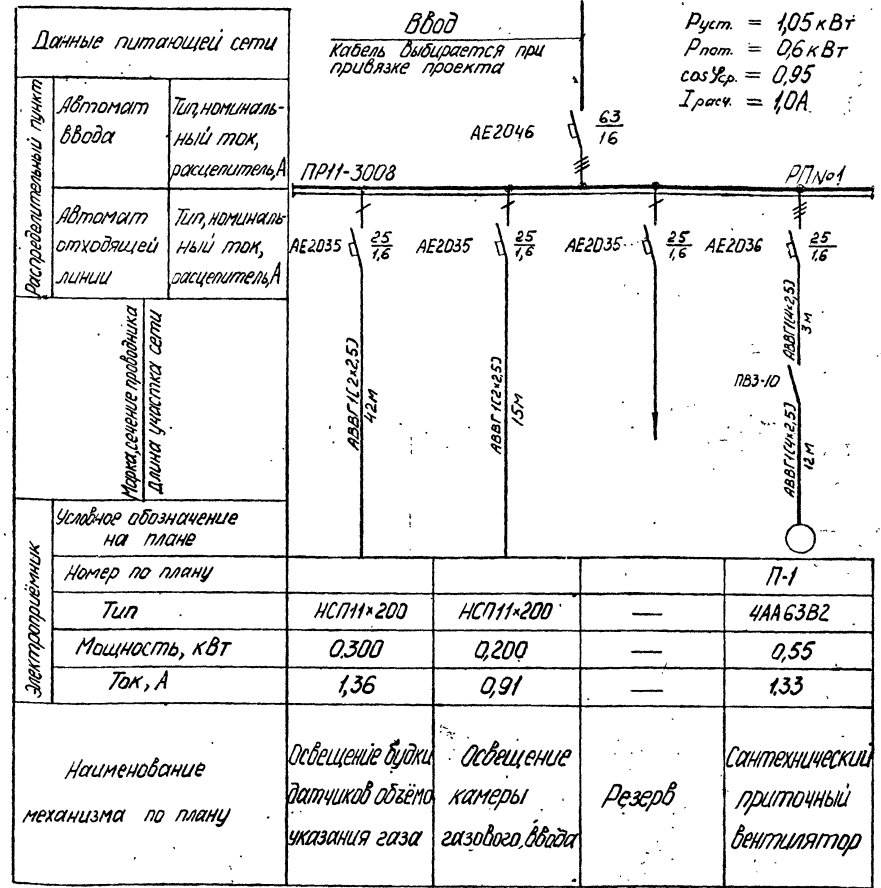 Данные питающей сети
Ввод
Кабель выбирается при
привязке проекта
Pуст. = 1,05 кВт
Pпот. = 0,6 кВт
cosφср. = 0,95
Iрасч. = 1,0А
Распределительный пункт
Автомат
ввода
Тип, номиналь-
ный ток,
расцепитель, А
АЕ2046
63
16
ПР11-3008
РП№1
Автомат
отходящей
линии
Тип, номиналь-
ный ток,
расцепитель, А
АЕ2035
25
1,6
АЕ2035
25
1,6
АЕ2035
25
1,6
АЕ2036
25
1,6
Марка, сечение проводника
Длина участка сети
АВВГ1(2×2,5)
42м
АВВГ1(2×2,5)
15м
АВВГ1(4×2,5)
3м
ПВ3-10
АВВГ1(4×2,5)
12м
Электроприёмник
Условное обозначение
на плане
Номер по плану
П-1
Тип
НСП11×200
НСП11×200
—
4АА63В2
Мощность, кВт
0,300
0,200
—
0,55
Ток, А
1,36
0,91
—
1,33
Наименование
механизма по плану
Освещение будки
датчиков объёмо
указания газа
Освещение
камеры
газового ввода
Резерв
Сантехнический
приточный
вентилятор